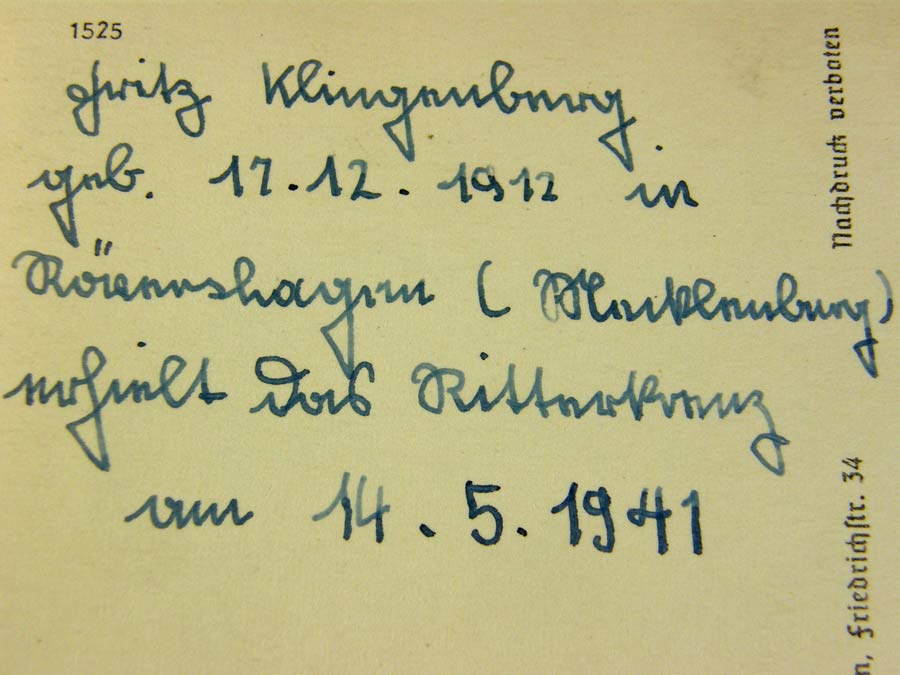 1525
Fritz Klingenberg
geb. 17.12.1912 in
Rövershagen (Mecklenburg)
erhielt das Ritterkreuz
am 14.5.1941
Nachdruck verboten
n, Friedrichstr. 34